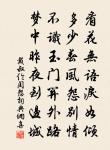 看花無語淚如傾
多少春風怨別情
不識玉門關外路
夢中昨夜到邊城
戴叔倫閨怨詞典網書